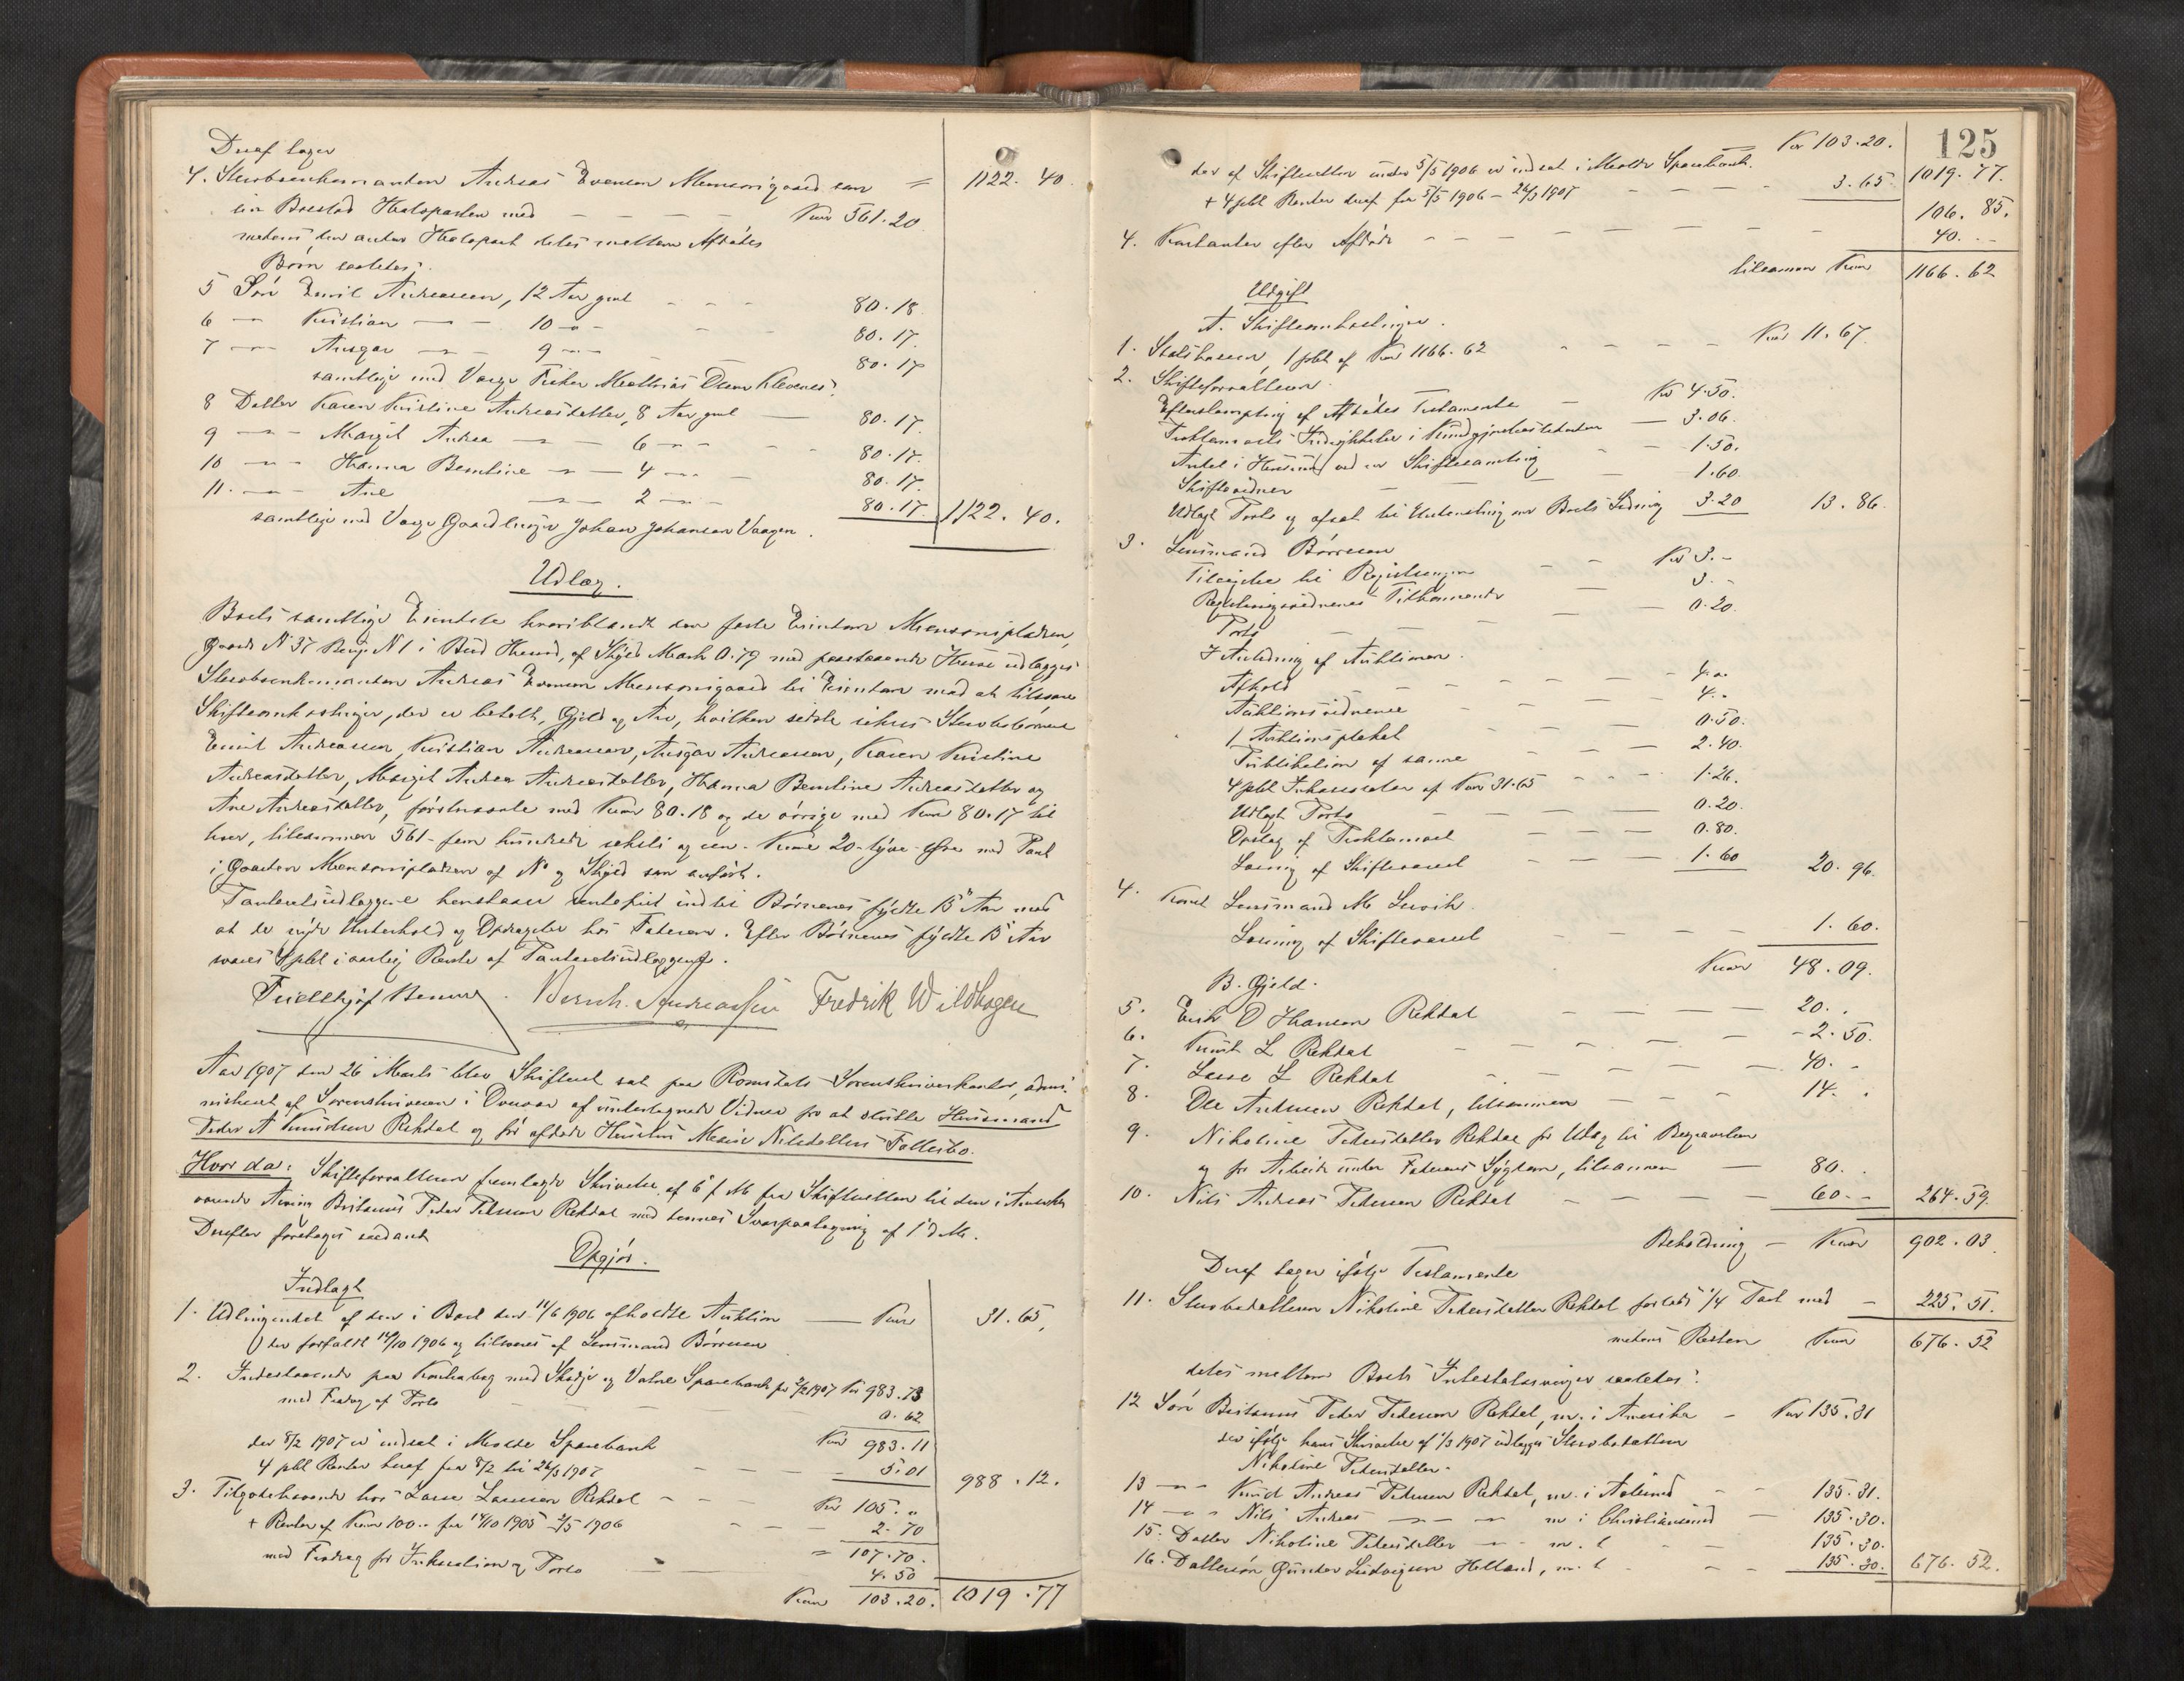 Deraf tager
4. Sterbøenkemanden Andreas Evensen Mensonigaard som = 1122. 40.
sin Boeslod Halvparten med — — — Kroner 561.20
medens den anden Halvpart deles mellem Afdødes
Børn saaledes:
5 Søn Emil Andreassen, 12 Aar gml - - - 80.18
6 — Kristian — - 10 - - - - 80.17.
7 — Ansgar — - 9 — 80.17
samtlige med Verge Fisker Mathias Olsen Klevenes.
8 Datter Karen Kristine Andreasdatter, 8 Aar gml — 80.17.
9 — — Margit Andrea — — 6 — - - - 80.17.
10 — — Hanna Berntine — — 4 — — 80.17.
11. — — Ane — — 2 — — 80.17. 1122. 40.
samtlige med Verge Gaardbruger Johan Johansen Vaagen.
Udlæg.
Boets samtlige Eiendele hvoriblandt den faste Eiendom Mensonipladsen,
Gaards N 37 Brug N 1 i Bud Herred, af Skyld Mark 0.79 med paastaaende Huse udlægges
Sterbøenkemanden Andreas Evensen Mensonigaard til Eiendom mod at tilsvare
Skifteomkostninger, der er betalt, Gjeld og Arv, hvilken sidste sikres Sterbøbørnene
Emil Andreassen, Kristian Andreassen, Ansgar Andreassen, Karen Kristine
Andreasdatter, Margit Andrea Andreasdatter, Hanna Berntine Andreasdatter og
Ane Andreasdatter, førstnævnte med Kroner 80.18 og de øvrige med Kroner 80.17 til
hver, tilsammen 561 - fem hundrede seksti og een - Kroner 20 - tyve - Øre med Pant
i Gaarden Mensonipladsen af N° og Skyld som anført.
Panteudlæggene henstaar rentefrit indtil Børnenes fyldte 15 Aar mod
at de nyder Underhold og Opdragelse hos Faderen. Efter Børnenes fyldte 15 Aar
svares 4 pCt i aarlig Rente af Panteudlæggene.
Bernh. Andreassen Fredrik Wildhagen
Aar 1907 den 26 Marts blev Skifteret sat paa Romsdals Sorenskriverkontor, admi-
nistreret af Sorenskriveren i Overvær af undertegnede Vidner for at slutte Husmand
Peder A Knudsen Rekdal og før afdøde Hustru Marie Nilsdatters Fællesbo.
Hvor da: Skifteforvalteren fremlagde Skrivelse af 6 f M fra Skifteretten til den i Amerika
værende Arving Britanus Peder Pedersen Rekdal med dennes Svarpaategning af 1 d M.
Derefter foretages saadant
Opgjør.
Indtægt
1. Udbringendet af den i Boet den 11/6 1906 afholdte Auktion — Kroner 31.65,
der forfaldt 14/10 1906 og tilsvares af Lensmand Børresen
2. Indestaaende paa Kontrabog med Skodje og Vatne Sparebank pr 2/2 1907 Kr 983.73
med Fradrag af Porto - - - 0.62
der 8/2 1907 er indsat i Molde Sparebank Kr 983.11
4 pCt Renter heraf fra 8/2 til 26/3 1907 - - - 5.01 988.12.
3. Tilgodehavende hos Lasse Larssen Rekdal - - - Kr 105. "
+ Renter af Kroner 100.- fra 14/10 1905 - 5/5 1906 - - - 2.70
= 107.70.
med Fradrag for Inkassation og Porto - — 4.50
Kroner 103.20. 1019.77
125
Kr 103.20. 1019.77.
der af Skifteretten under 5/5 1906 er indsat i Molde Sparebank
+ 4 pCt Renter deraf fra 5/5 1906 - 26/3 1907 - - - - 3.65 106.85.
4. Kontanter efter Afdøde - - - - - - 40. -
tilsammen Kroner 1166.62
Udgift
A. Skifteomkostninger.
1. Statskassen, 1 pCt af Kroner 1166.62 - - - - Kr 11.67.
2. Skifteforvalteren
Efterslumpning af Afdødes Testamente - Kr 4.50.
Proklamaets Indrykkelse i Kundgjørelsestidende — 3.06.
Andel i Henseende ved en Skiftesamling - - 1.50.
Skiftevidner — — — 1.60
Udlagt Porto og afsat til Udsending av Boets Ledning 3.20 13.86.
3. Lensmand Børresen
Tilsigelse til Registreringen - - Kr 3.-
Registreringsvidnenes Tilkommende - 3.-
Porto — — — 0.20.
I Anledning af Auktionen.
Afhold - - - - - - 4. "
Auktionsvidnerne - - - - 4. "
1 Auktionsplakat - - - 0.50.
Publikation af samme - - - 2.40.
4 pCt Inkassosalær af Kroner 31.65 - - - 1.26.
Udlagt Porto - - - - 0.20.
Opslag af Proklamaet - - - 0.80.
Løsning af Skiftevæsenet - - - 1.60 20.96.
4. Konst Lensmand M Lervik.
Løsning af Skiftevæsenet - - - - 1.60.
Kroner 48.09.
B. Gjeld.
5. Erik O Hansen Rekdal - - - — 20. .
6. Knut L Rekdal - - - - - 2.50.
7. Lasse L Rekdal - - - - 40. -
8. Ole Andersen Rekdal, tilsammen - - - 14. .
9. Nikoline Pedersdatter Rekdal for Udlæg til Begravelsen
og for Arbeide under Faderens Sygdom, tilsammen — 80. .
10. Nils Andreas Pedersen Rekdal — - - - 60 - - 264.59.
Beholdning - Kroner 902.03.
Deraf tager ifølge Testamente
11. Sterbødatteren Nikoline Pedersdatter Rekdal forlods 1/4 Part med - 225.51.
medens Resten Kroner 676.52
deles mellem Boets Intestatarvinger saaledes:
12 Søn Britanus Peder Pedersen Rekdal, m. i Amerika - Kr 135.31
der ifølge hans Skrivelse af 1/3 1907 udlægges Sterbødatteren
Nikoline Pedersdatter.
13 — Knud Andreas Pedersen Rekdal, m. i Aalesund - - 135.31.
14 — Nils Andreas — — — m i Christiansund — 135.30.
15. Datter Nikoline Pedersdatter — - m. - - 135.30.
16. Dattersøn Gunder Ludvigsen Helland, m. - - - 135.30. 676.52.